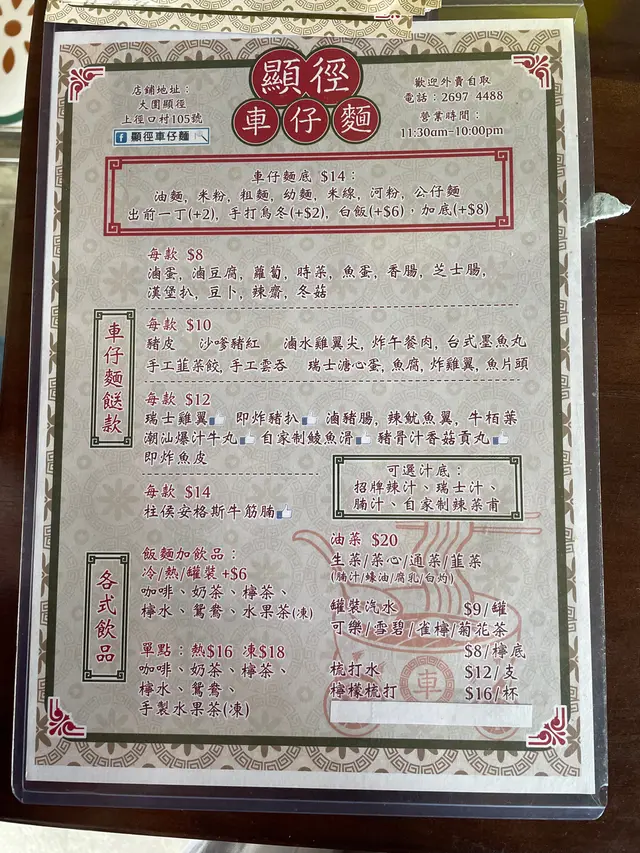 店鋪地址：
大圍顯徑
上徑口村105號
顯徑車仔麵
顯徑
車仔麵
歡迎外賣自取
電話：2697 4488
營業時間：
11:30am-10:00pm
車仔麵底 $14：
油麵, 米粉, 粗麵, 幼麵, 米線, 河粉, 公仔麵
出前一丁(+2), 手打烏冬(+$2), 白飯(+$6), 加底(+$8)
車仔麵餸款
每款 $8
滷蛋, 滷豆腐, 蘿蔔, 時菜, 魚蛋, 香腸, 芝士腸,
漢堡扒, 豆卜, 辣齋, 冬菇
每款 $10
豬皮 沙嗲豬紅 滷水雞翼尖, 炸午餐肉, 台式墨魚丸
手工韮菜餃, 手工雲吞 瑞士溏心蛋, 魚腐, 炸雞翼, 魚片頭
每款 $12
瑞士雞翼 即炸豬扒 滷豬腸, 辣魷魚翼, 牛栢葉
潮汕爆汁牛丸 自家制鯪魚滑 豬骨汁香菇貢丸
即炸魚皮
每款 $14
柱侯安格斯牛筋腩
可選汁底：
招牌辣汁、瑞士汁、
腩汁、自家制辣菜甫
各式飲品
飯麵加飲品：
冷/熱/罐裝 +$6
咖啡、奶茶、檸茶、
檸水、鴛鴦、水果茶(凍)
單點：熱$16 凍$18
咖啡、奶茶、檸茶、
檸水、鴛鴦、
手製水果茶(凍)
油菜 $20
生菜/菜心/通菜/韮菜
(腩汁/蠔油/腐乳/白灼)
罐裝汽水 $9/罐
可樂/雪碧/雀檸/菊花茶
$8/檸底
梳打水 $12/支
檸檬梳打 $16/杯
車